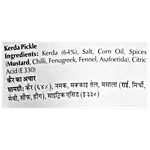 Kerda Pickle
Ingredients: Kerda (64%), Salt, Corn Oil, Spices
(Mustard, Chilli, Fenugreek, Fennel, Asafoetida), Citric
Acid (E 330)
कैर का अचार
सामग्री: कैर (६४%), नमक, मक्काइ तेल, मसाला (राई, मिर्ची,
मेथी, सौंफ, हींग), साइट्रिक एसिड (इ ३३०)